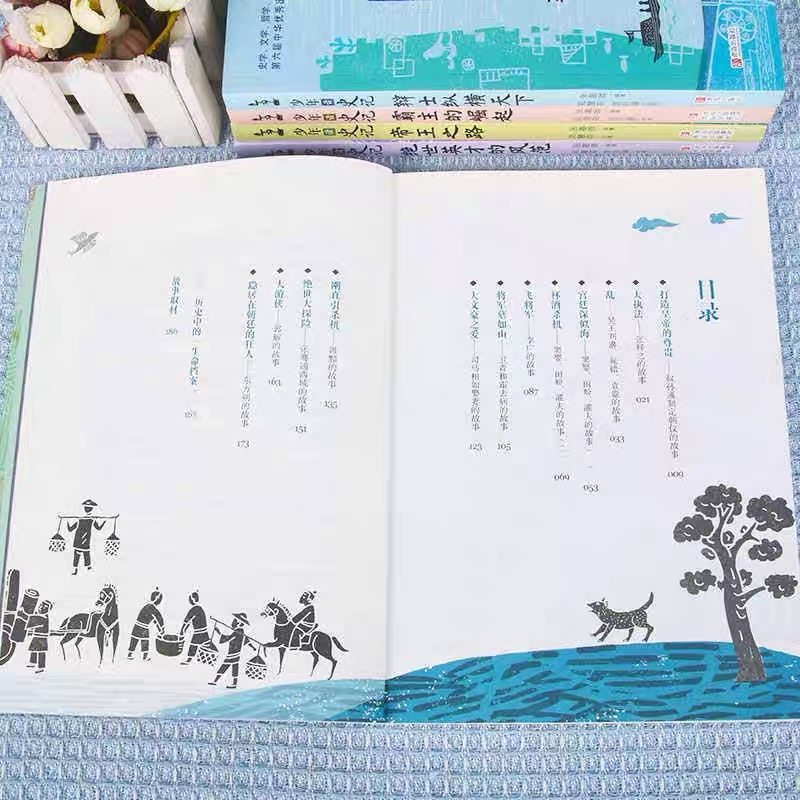 史学、文学、哲学
第六届中华优秀出
少年读史记 辩士纵横天下
少年读史记 霸王的崛起
少年读史记 帝王之路
少年读史记 绝世英才的风范
目录
打造皇帝的尊贵——叔孙通制定朝仪的故事 009
大执法——张释之的故事 021
乱——晁错、袁盎的故事 033
宫廷深似海——窦婴、田蚡、灌夫的故事（一） 053
杯酒杀机——窦婴、田蚡、灌夫的故事（二） 069
飞将军——李广的故事 087
将军墓如山——卫青和霍去病的故事 105
大文豪之爱——司马相如娶妻的故事 123
刚直引杀机——汲黯的故事 135
绝世大探险——张骞通西域的故事 151
大游侠——郭解的故事 163
隐居在朝廷的狂人——东方朔的故事 173
历史中的“生命档案” 183
故事取材 186